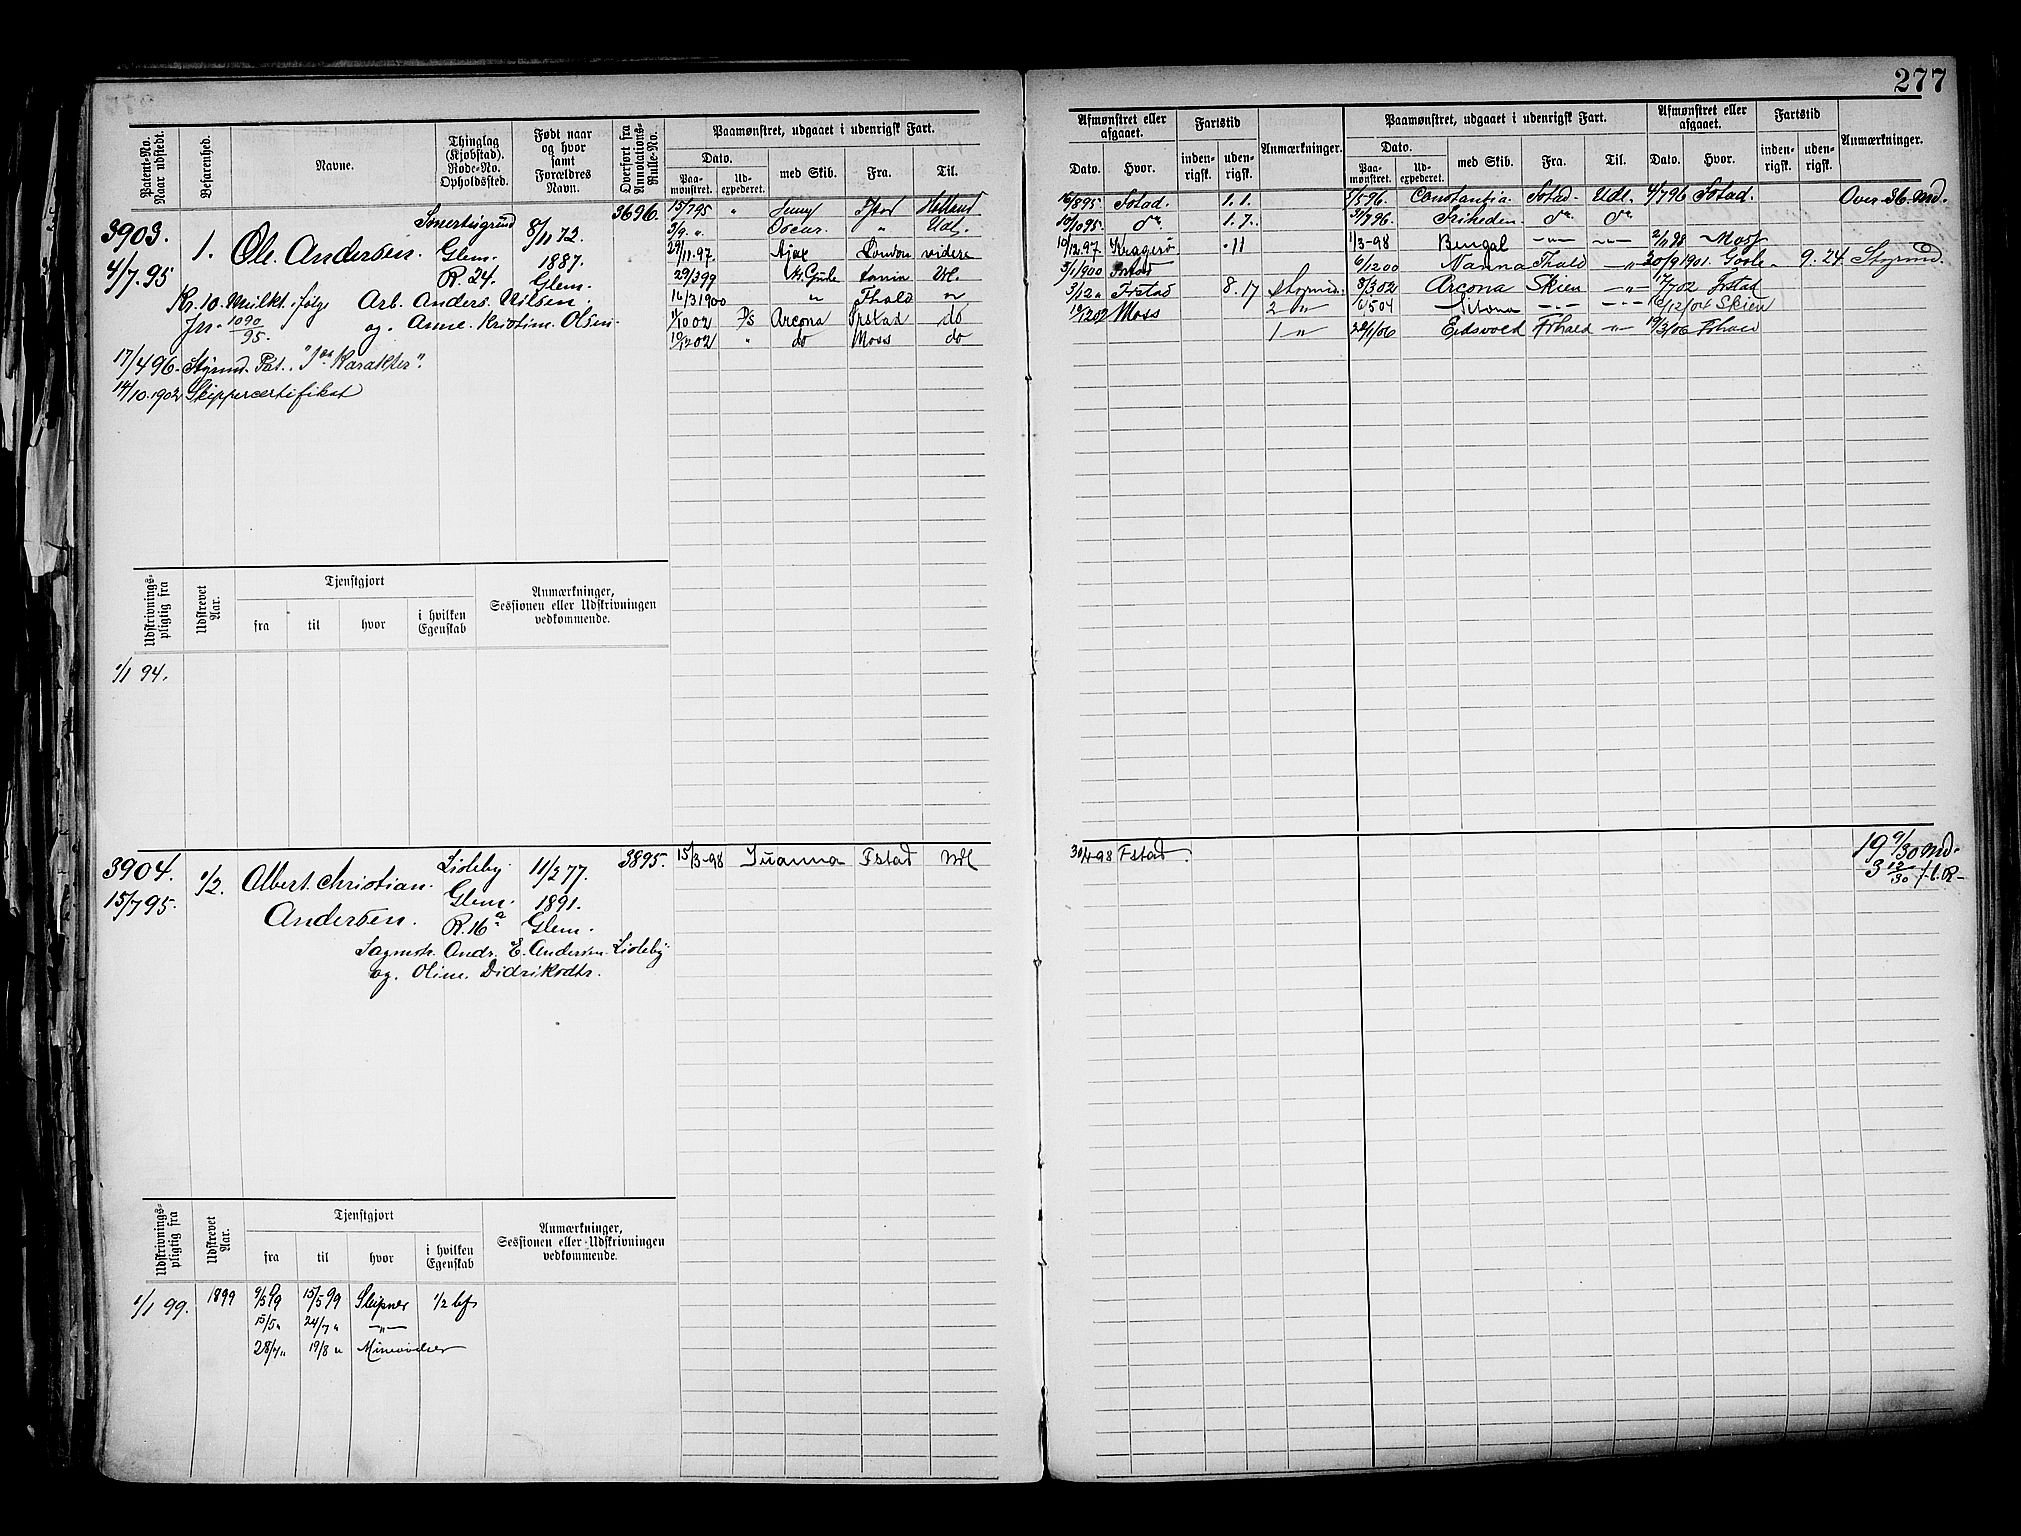 277
Patent-No. Naar udstedt.
Besarenhed.
Navne.
Thinglag (Kjøbstad). Rode-No. Opholdssted.
Født naar og hvor samt Forældres Navn.
Overført fra Annotations-Rulle-No.
Paamønstret, udgaaet i udenrigsk Fart.
Dato.
Paa-mønstret.
Ud-expederet.
med Skib.
Fra.
Til.
3903.
4/7.95
1.
Ole Andersen.
Glem.
R. 24.
8/11 72.
1887.
Glem.
3696.
Kr. 10. Mulkt. ifølge Arb. Anders Nilsen.
Jrn. 1090/95. og Anne Kristine Olsen.
17/4 96. Styrmd. Pat.
14/10.1902 Skippercertifikat
15/7 95 " Jenny Holland
3/9. ". Oscar. " Udl.
29/11.97 Ajax London videre
29/3 99 Fhald
16/3 1900 " Fhald "
11/10 02 D/S Arcona Frstad do
10/12 02 " do Moss do
Udskrivnings-pligtig fra
Udskrevet Aar.
Tjenstgjort
fra
til
hvor
i hvilken Egenskab
Anmærkninger, Sessionen eller Udskrivningen vedkommende.
1/1 94.
3904.
15/7 95.
1/2.
Albert Christian.
Andersen.
Lisleby
Glem.
R. 16 a
11/2 77.
1891.
Glem.
3895.
15/3-98 Juanna Fstad Udl
Sagmstr. Andr. E. Andersen. Lisleby
og. Oline Didriksdtr.
Udskrivnings-pligtig fra
Udskrevet Aar.
Tjenstgjort
fra
til
hvor
i hvilken Egenskab
Anmærkninger, Sessionen eller Udskrivningen vedkommende.
1/1 99. 1899 9/5 99 15/5 99 Sleipner 1/2 bf
15/5 " 24/7 " —"—
28/7 " 19/8 "
Afmønstret eller afgaaet.
Dato.
Hvor.
Fartstid
inden-rigsk.
uden-rigsk.
Anmærkninger.
Paamønstret, udgaaet i udenrigsk Fart.
Dato.
Paa-mønstret.
Ud-expederet.
med Skib.
Fra.
Til.
Afmønstret eller afgaaet.
Dato.
Hvor.
Fartstid
inden-rigsk.
uden-rigsk.
Anmærkninger.
16/8 95. Fstad. 1.1. 1/5 96. Constantia. Fstad. Udl. 4/7 96 Fstad. Over 36. Md.
10/10 95. do 1.7. 31/7 96. Friheden do do
10/12.97 Kragerø . 11 1/3-98 Bengal —"— —"— 2/11 98 Moss
5/1 1900 Frstad 6/12 00 Nanna Fhald —"— 20/9 1901. Goole. 9.24 Styrmd.
3/12 " Frstad 8.17 Styrmd. 8/3 02 Arcona Skien —"— 17/7 02 Frstad
10/12 02 Moss 2 " 1/5 04 —"— —"— 16/12/04 Skien
1 " 22/1/06 Eidsvold Frhald —"— 19/3/06 Frhald
30/4-98 Fstad.
19 9/30 Md.
3 12/30 f.l.R-